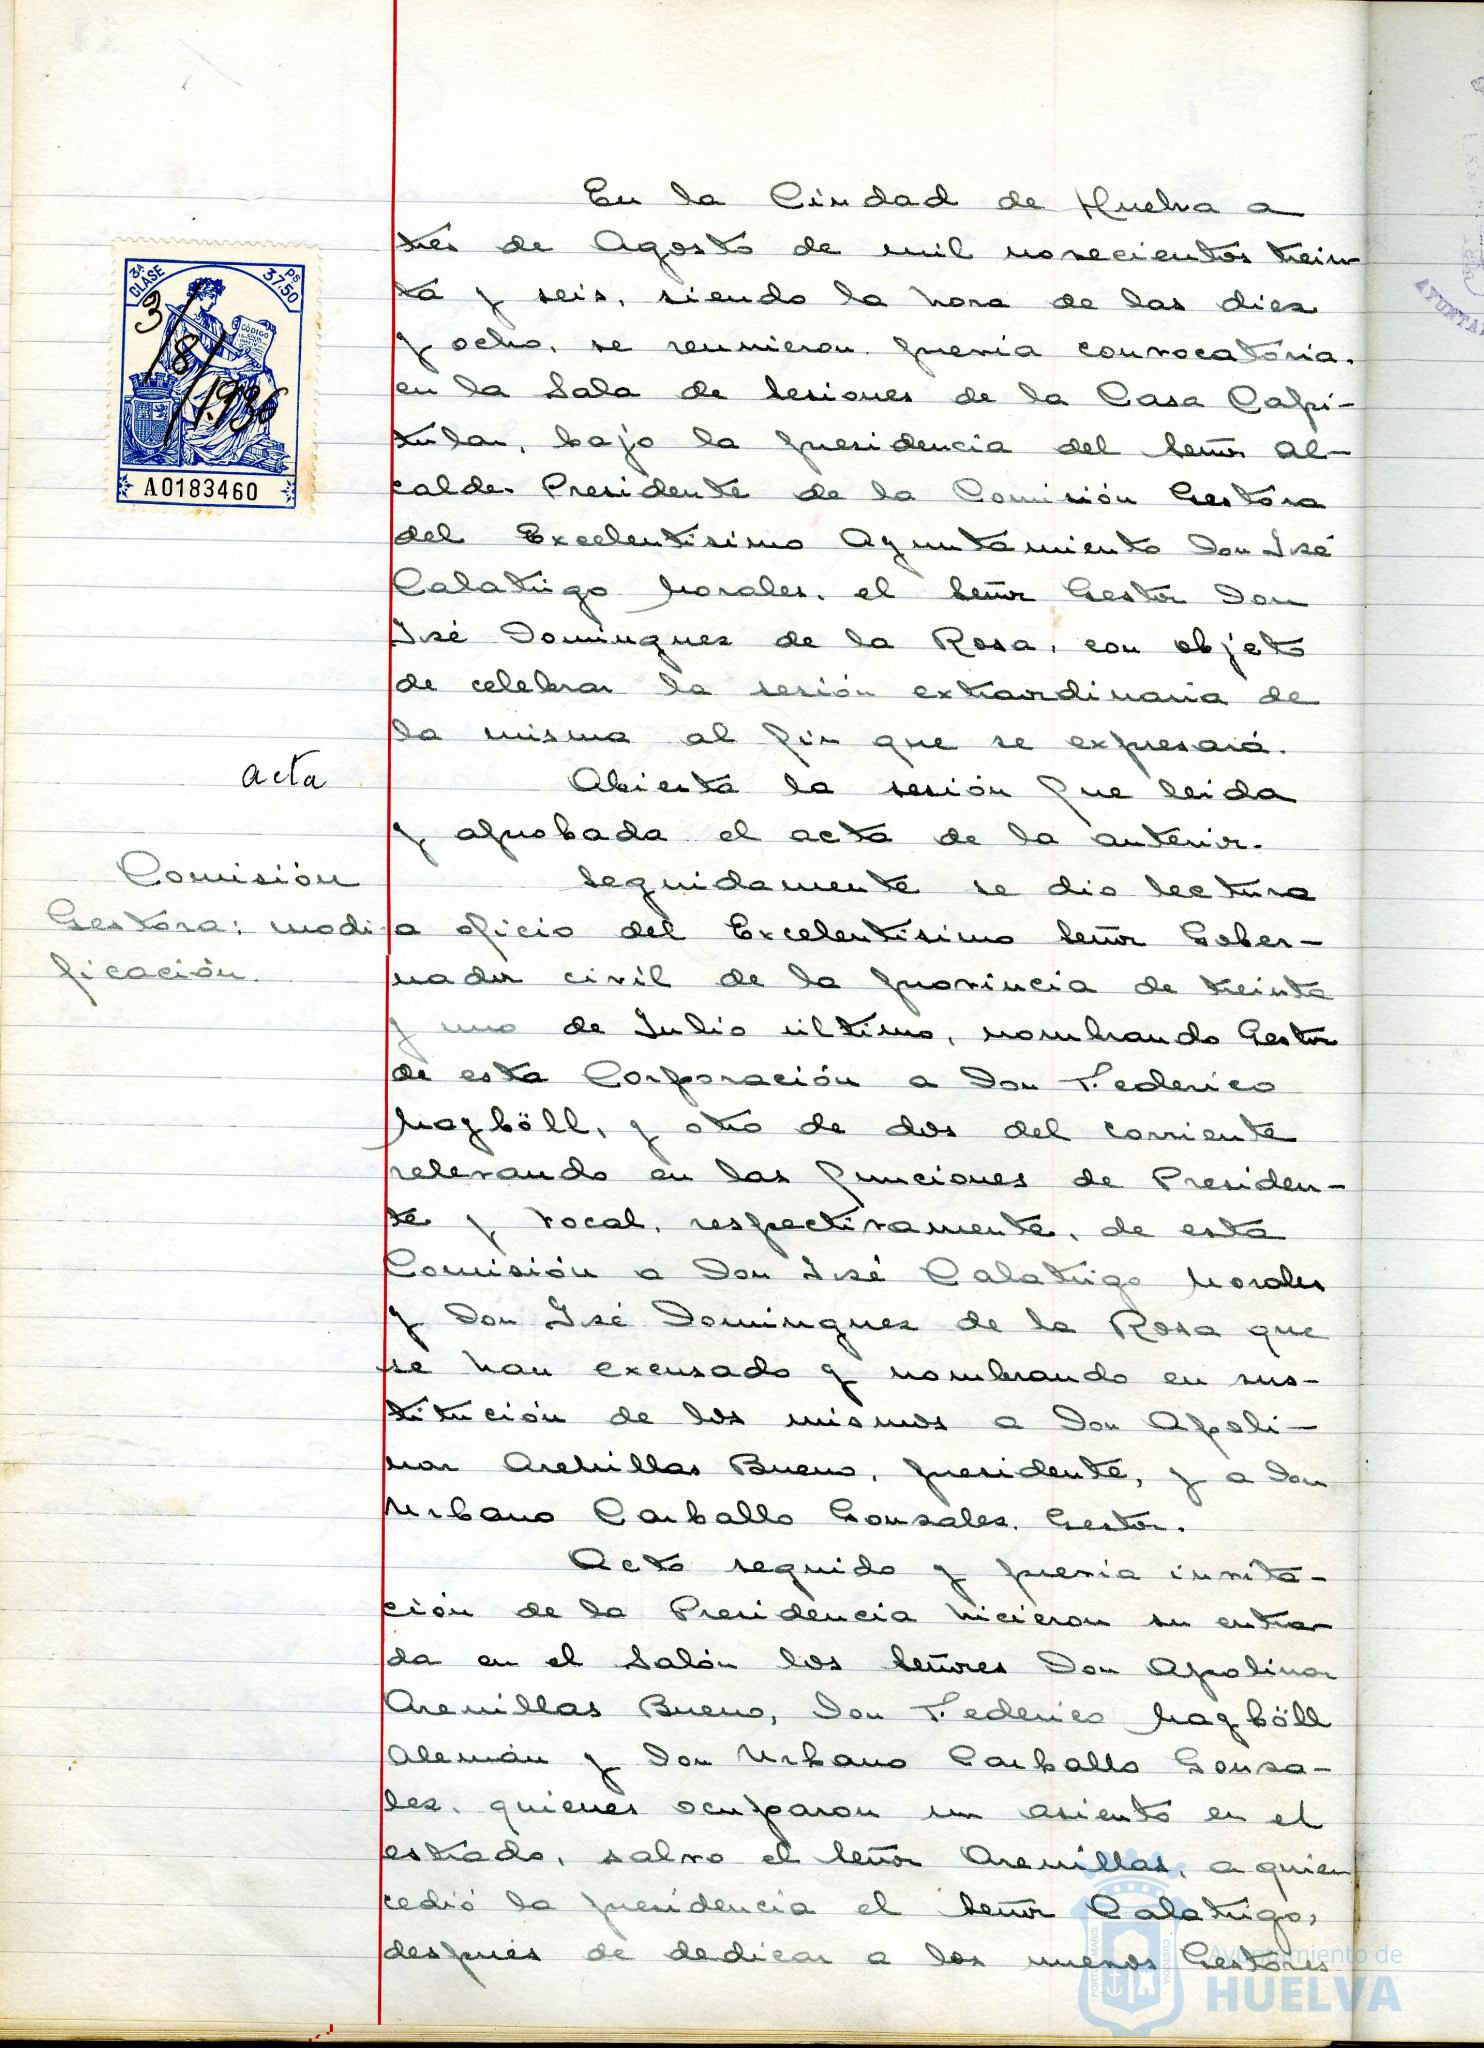 3ª CLASE
Ps 37,50
CÓDIGO
3/8/1.936
A0183460
En la Ciudad de Huelva a
tres de Agosto de mil novecientos trein-
ta y seis, siendo la hora de las diez
y ocho, se reunieron previa convocatoria,
en la Sala de Sesiones de la Casa Capi-
tular, bajo la presidencia del Señor Al-
calde-Presidente de la Comisión Gestora
del Excelentísimo Ayuntamiento Don José
Calatrigo Morales, el Señor Gestor Don
José Dominguez de la Rosa, con objeto
de celebrar la sesión extraordinaria de
la misma al fin que se expresará.
acta
Abierta la sesión fue leida
y aprobada el acta de la anterior.
Comisión
Gestora: modi-
ficación.
Seguidamente se dio lectura
a oficio del Excelentísimo Señor Gober-
nador civil de la provincia de treinta
y uno de Julio último, nombrando Gestor
de esta Corporación a Don Federico
Mayböll, y otro de dos del corriente
relevando en las funciones de Presiden-
te y vocal, respectivamente, de esta
Comisión a Don José Calatrigo Morales
y Don José Dominguez de la Rosa que
se han excusado y nombrando en sus-
titución de los mismos a Don Apoli-
nar Arenillas Bueno, presidente, y a Don
Urbano Carballo Gonzales, Gestor.
Acto seguido y previa invita-
ción de la Presidencia hicieron su entra-
da en el Salón los Señores Don Apolinar
Arenillas Bueno, Don Federico Mayböll
Alemán y Don Urbano Carballo Gonza-
lez, quienes ocuparon un asiento en el
estrado, salvo el Señor Arenillas, a quien
cedió la presidencia el Señor Calatrigo,
después de dedicar a los nuevos Gestores
AYUNTA
Ayuntamiento de
HUELVA